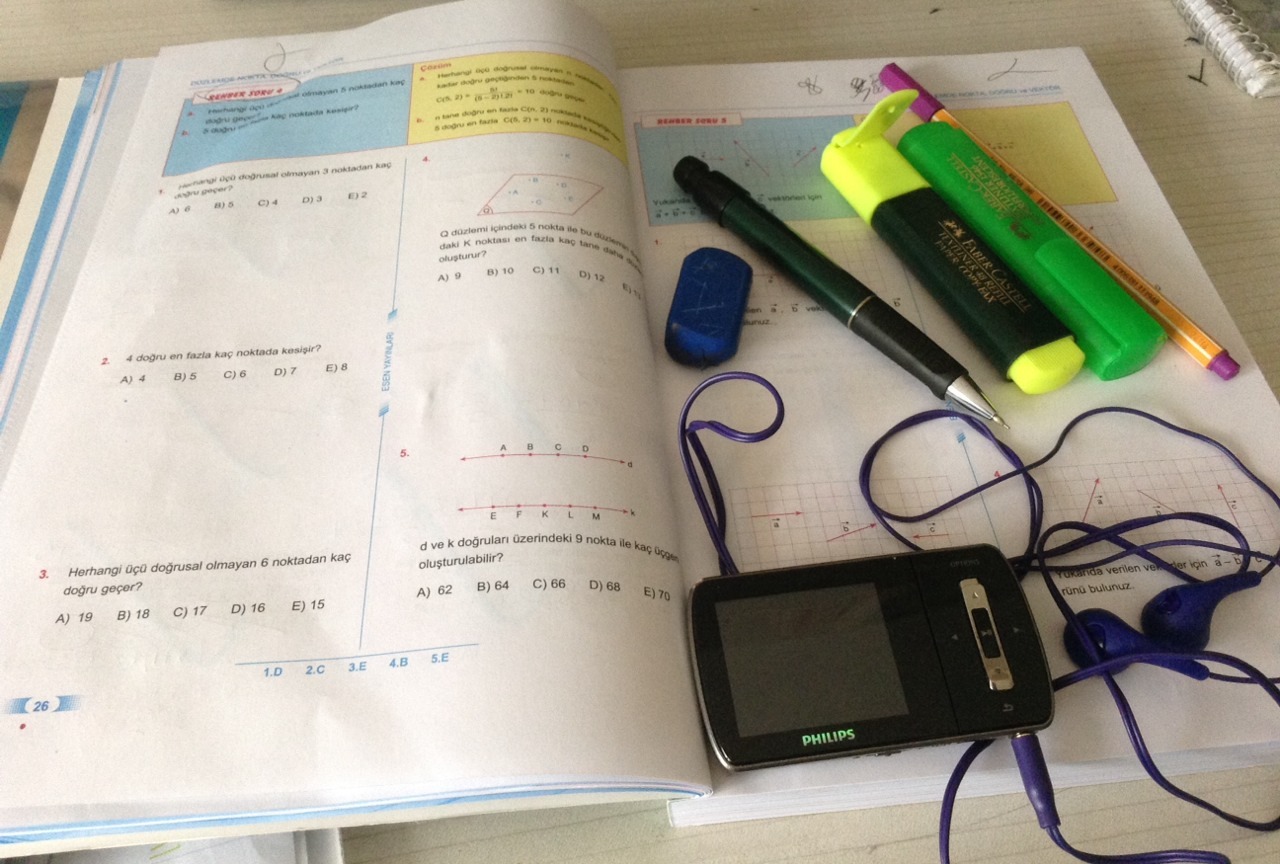 DÜZLEMDE NOKTA, DOĞRU
REHBER SORU 4
a. Herhangi üçü doğrusal olmayan 5 noktadan kaç
doğru geçer?
b. 5 doğru en fazla kaç noktada kesişir?
Çözüm
a. Herhangi üçü doğrusal olmayan n
kadar doğru geçtiğinden 5 noktadan
C(5, 2) = 5! / (5 – 2)! 2! = 10 doğru geçer.
b. n tane doğru en fazla C(n, 2) noktada
5 doğru en fazla C(5, 2) = 10 noktada
1. Herhangi üçü doğrusal olmayan 3 noktadan kaç
doğru geçer?
A) 6 B) 5 C) 4 D) 3 E) 2
2. 4 doğru en fazla kaç noktada kesişir?
A) 4 B) 5 C) 6 D) 7 E) 8
3. Herhangi üçü doğrusal olmayan 6 noktadan kaç
doğru geçer?
A) 19 B) 18 C) 17 D) 16 E) 15
ESEN YAYINLARI
4.
K
B
D
A
C
E
Q
Q düzlemi içindeki 5 nokta ile bu
daki K noktası en fazla kaç tane daha
oluşturur?
A) 9 B) 10 C) 11 D) 12
5.
A B C D d
E F K L M k
d ve k doğruları üzerindeki 9 nokta ile kaç üçgen
oluşturulabilir?
A) 62 B) 64 C) 66 D) 68 E) 70
1.D 2.C 3.E 4.B 5.E
26
DÜZLEMDE NOKTA, DOĞRU ve VEKTÖR
REHBER SORU 5
Yukarıda
vektörleri için
1.
a⃗ , b⃗
b⃗
4.
a⃗ b⃗ c⃗
a⃗ c⃗
Yukarıda verilen için a⃗ – b⃗
rünü bulunuz.
FABER CASTELL
TEXTLINER 48 REFILL
PAPER COPY FAX
OPTIONS
PHILIPS